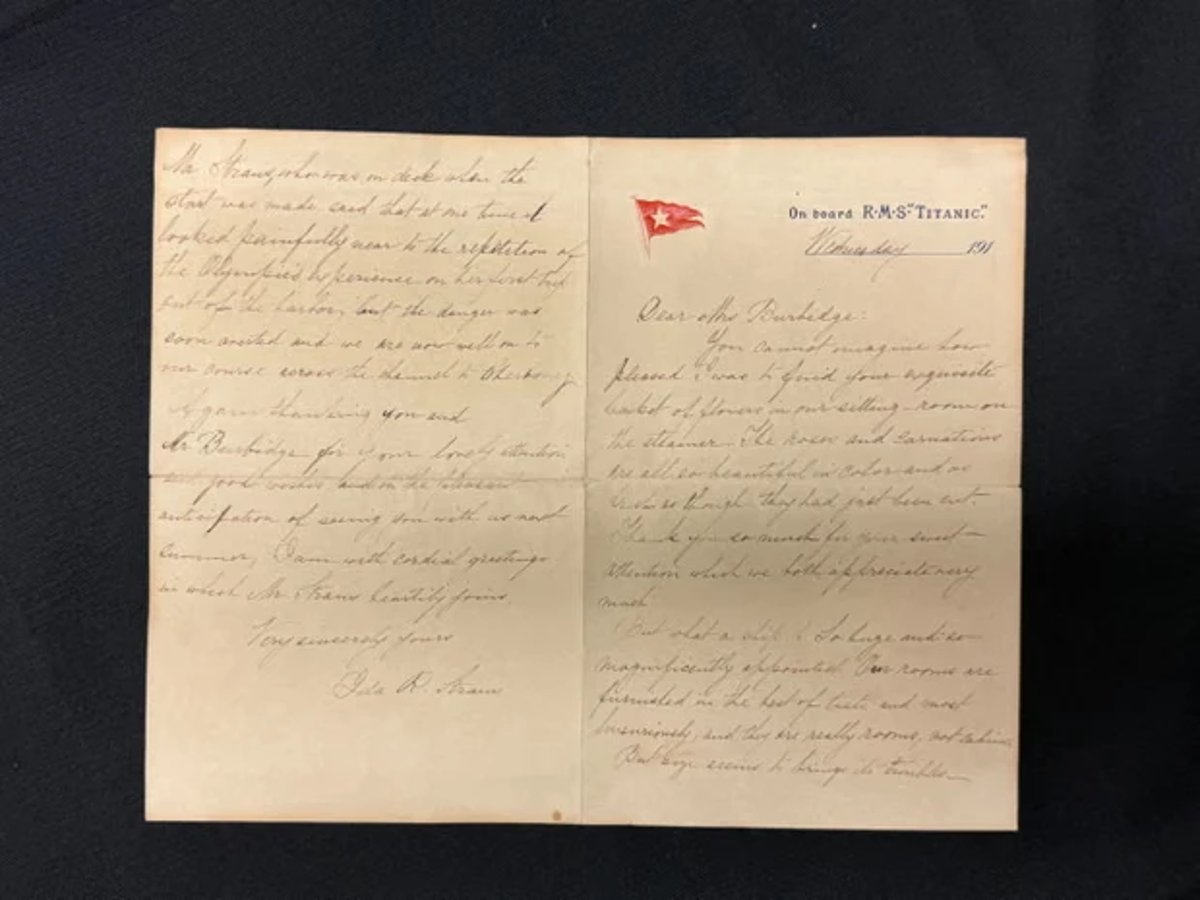 On board R·M·S "TITANIC."
Wednesday 191
Dear Mrs Burbidge:
You cannot imagine how
pleased I was to find your exquisite
basket of flowers in our sitting-room on
the steamer. The roses and carnations
are all so beautiful in color and as
fresh as though they had just been cut.
Thank you so much for your sweet
attention which we both appreciate very
much.
But what a ship! So huge and so
magnificently appointed. Our rooms are
furnished in the best of taste and most
luxuriously, and they are really rooms, not cabins.
But size seems to bring its troubles—
Mr Straus, who was on deck when the
start was made said that at one time it
looked painfully near to the repetition of
the Olympic's experience on her first trip
out of the harbor, but the danger was
soon averted and we are now well on to
our course across the channel to Cherbourg.
Again thanking you and
Mr Burbidge for your lovely attention
and good wishes and in the pleasant
anticipation of seeing you with us next
summer, I am with cordial greetings
in which Mr Straus heartily joins,
Very sincerely yours
Ida R. Straus